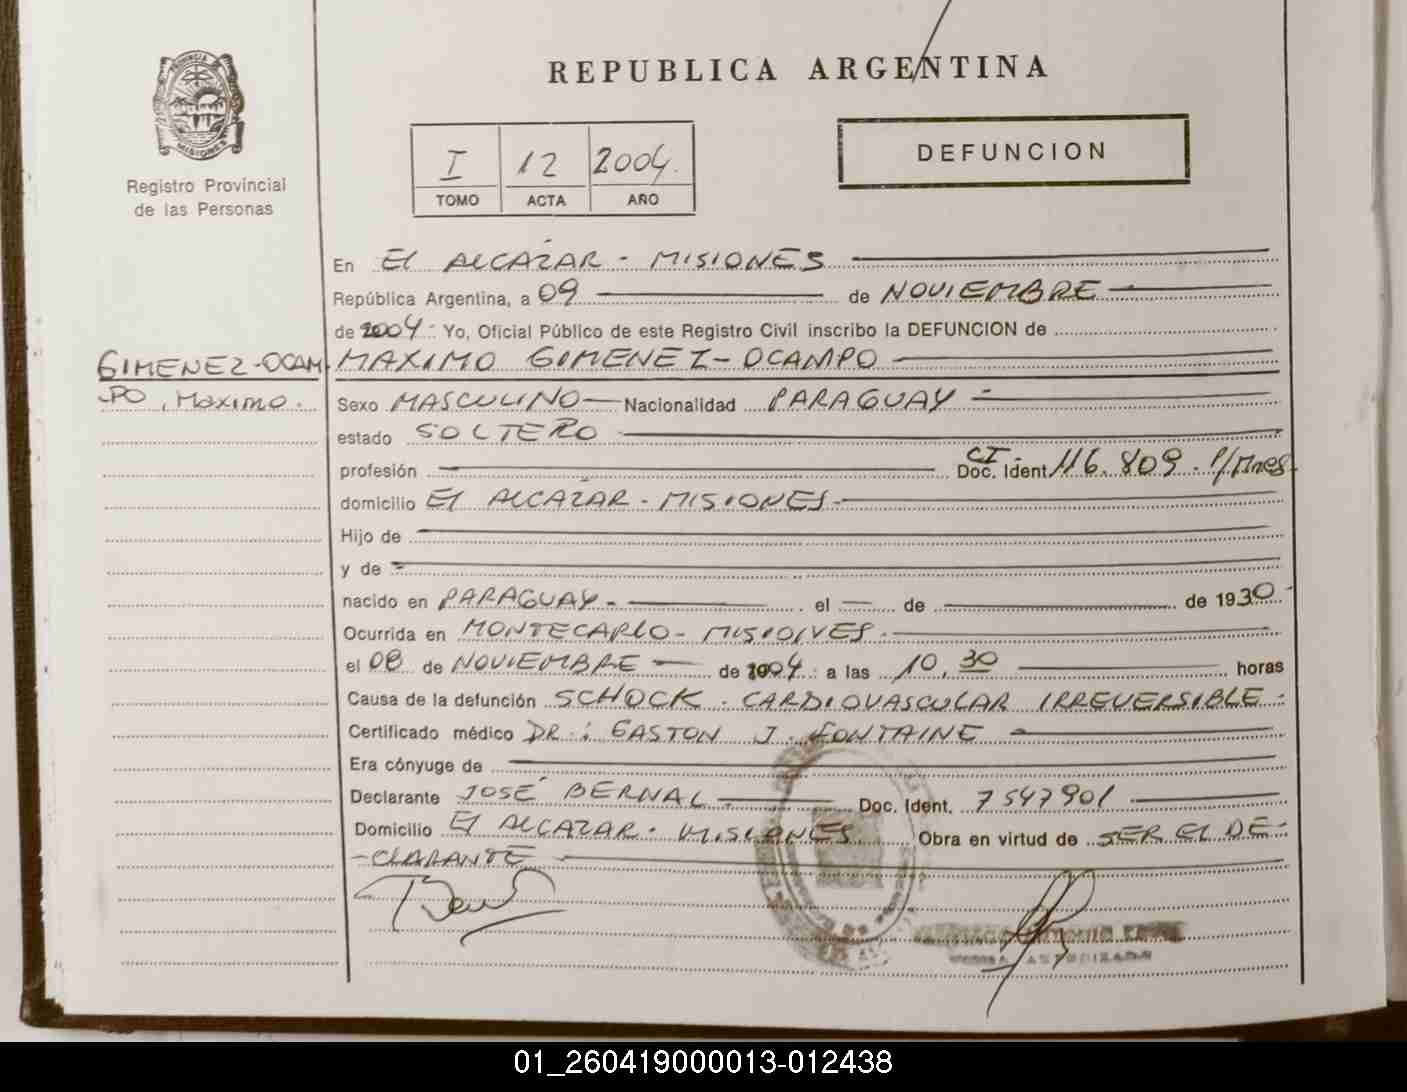 REPUBLICA ARGENTINA
PROVINCIA DE
MISIONES
Registro Provincial
de las Personas
I 12 2004.
TOMO ACTA AÑO
DEFUNCION
En El ALCAZAR - MISIONES
República Argentina, a 09 de NOVIEMBRE
de 2004 : Yo, Oficial Público de este Registro Civil inscribo la DEFUNCION de
GIMENEZ-OCAM
PO, Maximo.
MAXIMO GIMENEZ-OCAMPO
Sexo MASCULINO Nacionalidad PARAGUAY
estado SOLTERO
profesión Doc. Ident. CI 116.809. P/Mnes
domicilio El ALCAZAR - MISIONES
Hijo de
y de
nacido en PARAGUAY - el de de 1930
Ocurrida en MONTECARLO - MISIONES.
el 08 de NOVIEMBRE de 2004 : a las 10,30 horas
Causa de la defunción SCHOCK . CARDIOVASCULAR IRREVERSIBLE
Certificado médico DR : GASTON J. FONTAINE
Era cónyuge de
Declarante JOSÉ BERNAL Doc. Ident. 7547901
Domicilio El ALCAZAR - MISIONES Obra en virtud de SER EL DE-
-CLARANTE
AUTORIZADA
01_260419000013-012438